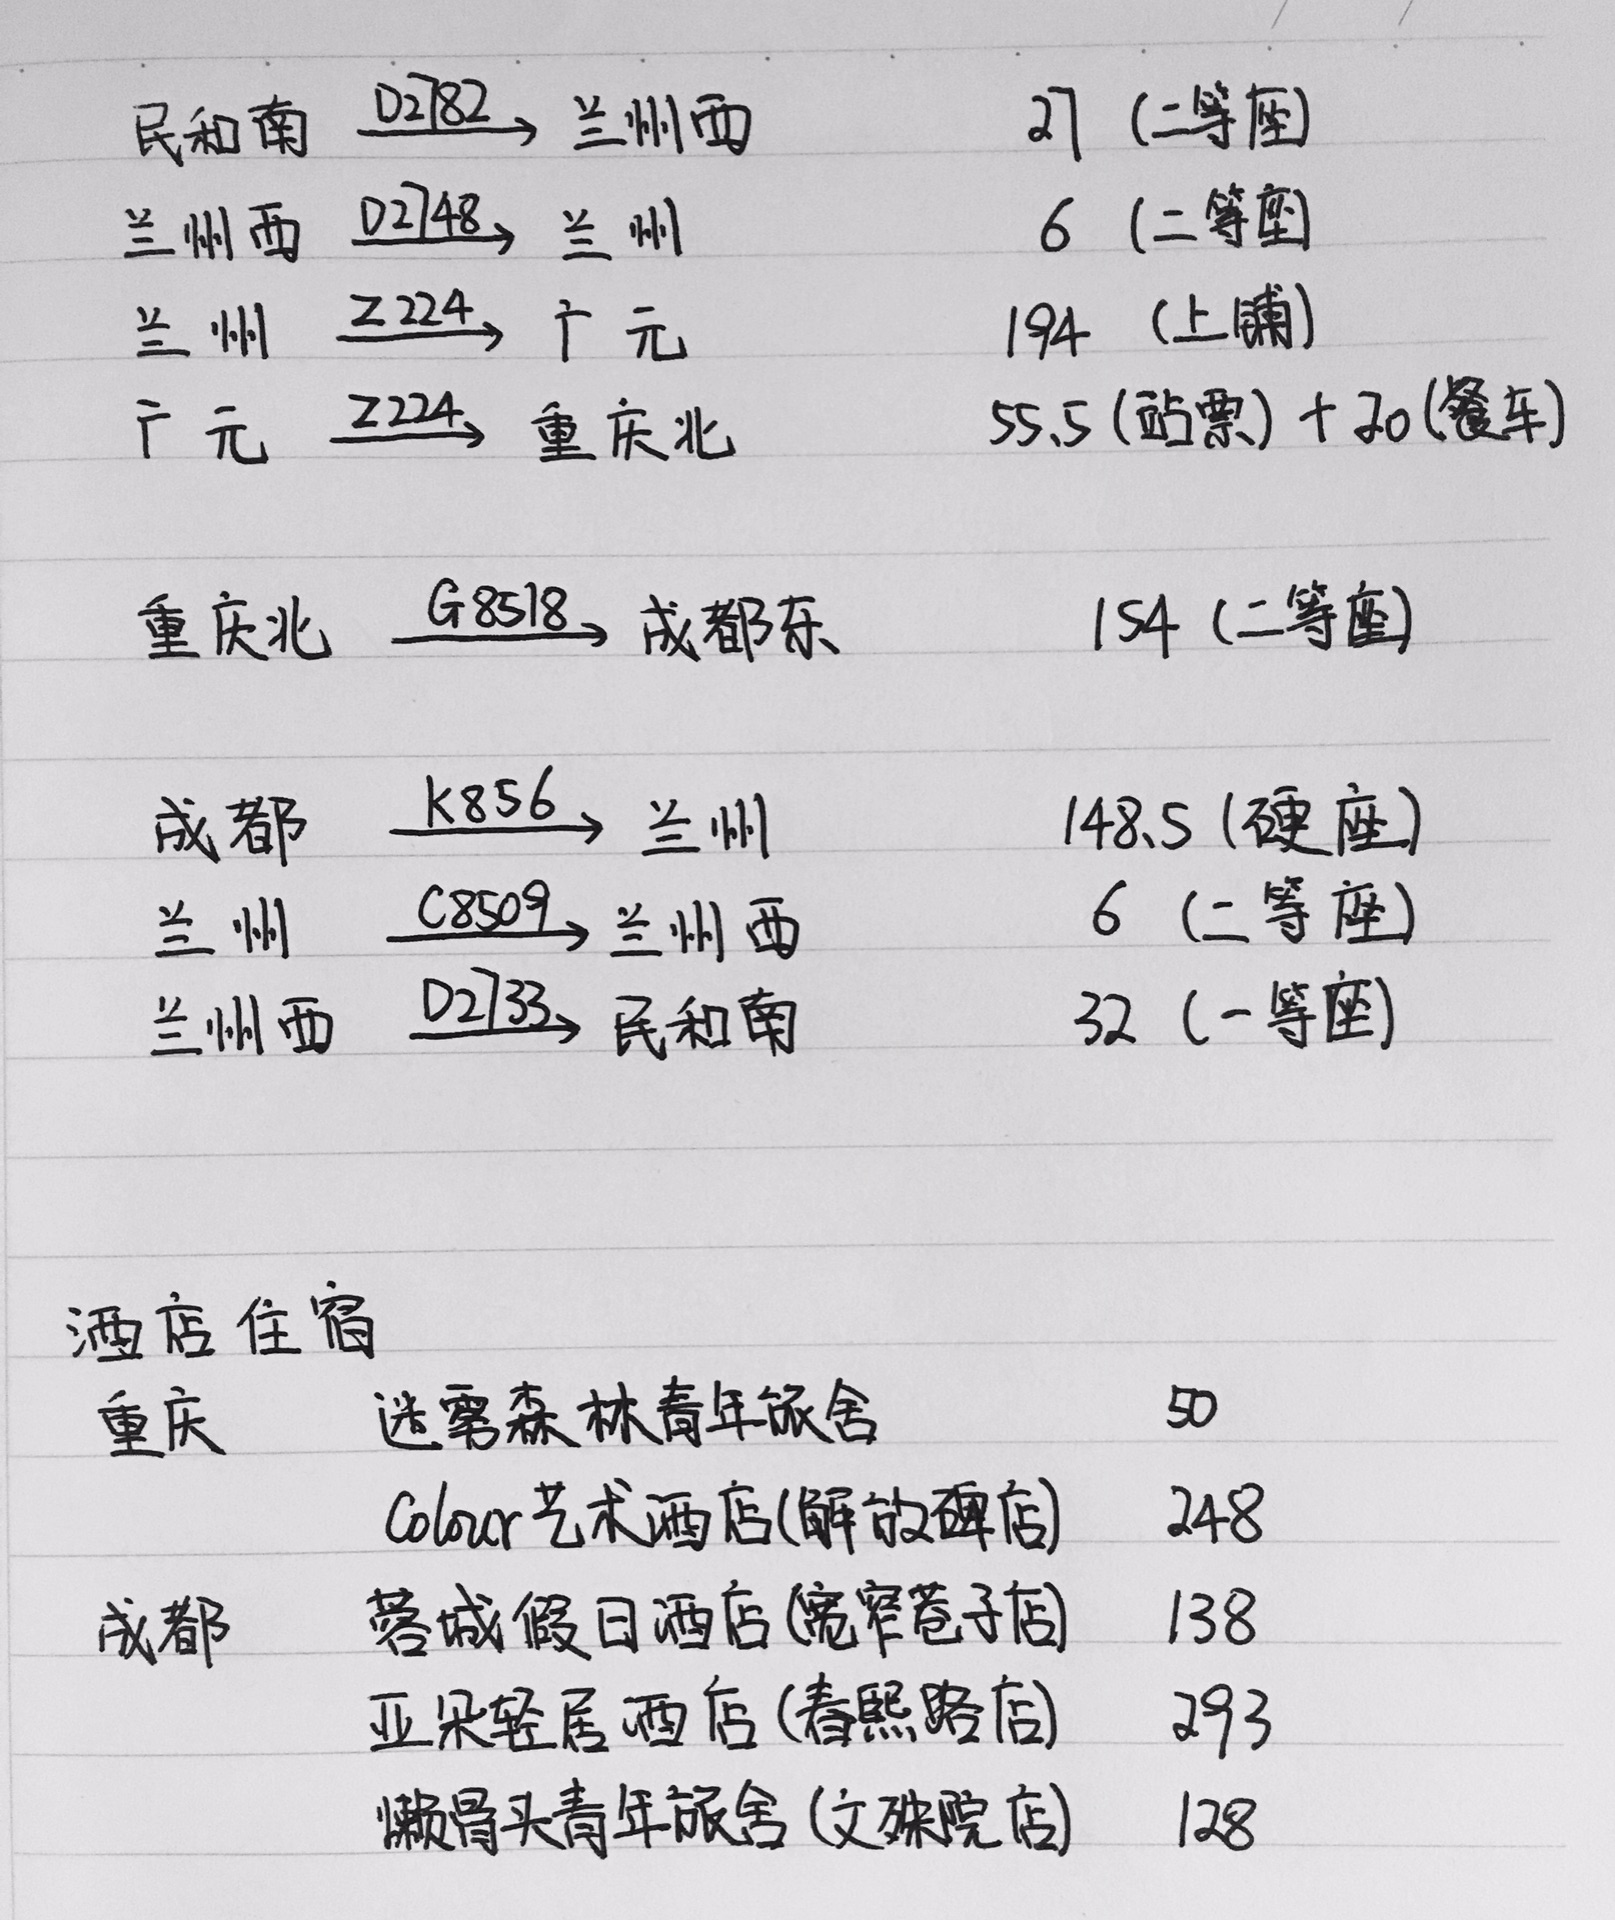 民和南 D2782→ 兰州西 27 (二等座)
兰州西 D2748→ 兰州 6 (二等座)
兰州 Z224→ 广元 194 (上铺)
广元 Z224→ 重庆北 55.5 (站票) + 20 (餐车)
重庆北 G8518→ 成都东 154 (二等座)
成都 K856→ 兰州 148.5 (硬座)
兰州 C8509→ 兰州西 6 (二等座)
兰州西 D2733→ 民和南 32 (一等座)
酒店住宿
重庆 迷雾森林青年旅舍 50
Colour艺术酒店(解放碑店) 248
成都 蓉城假日酒店(宽窄巷子店) 138
亚朵轻居酒店(春熙路店) 293
懒骨头青年旅舍(文殊院店) 128